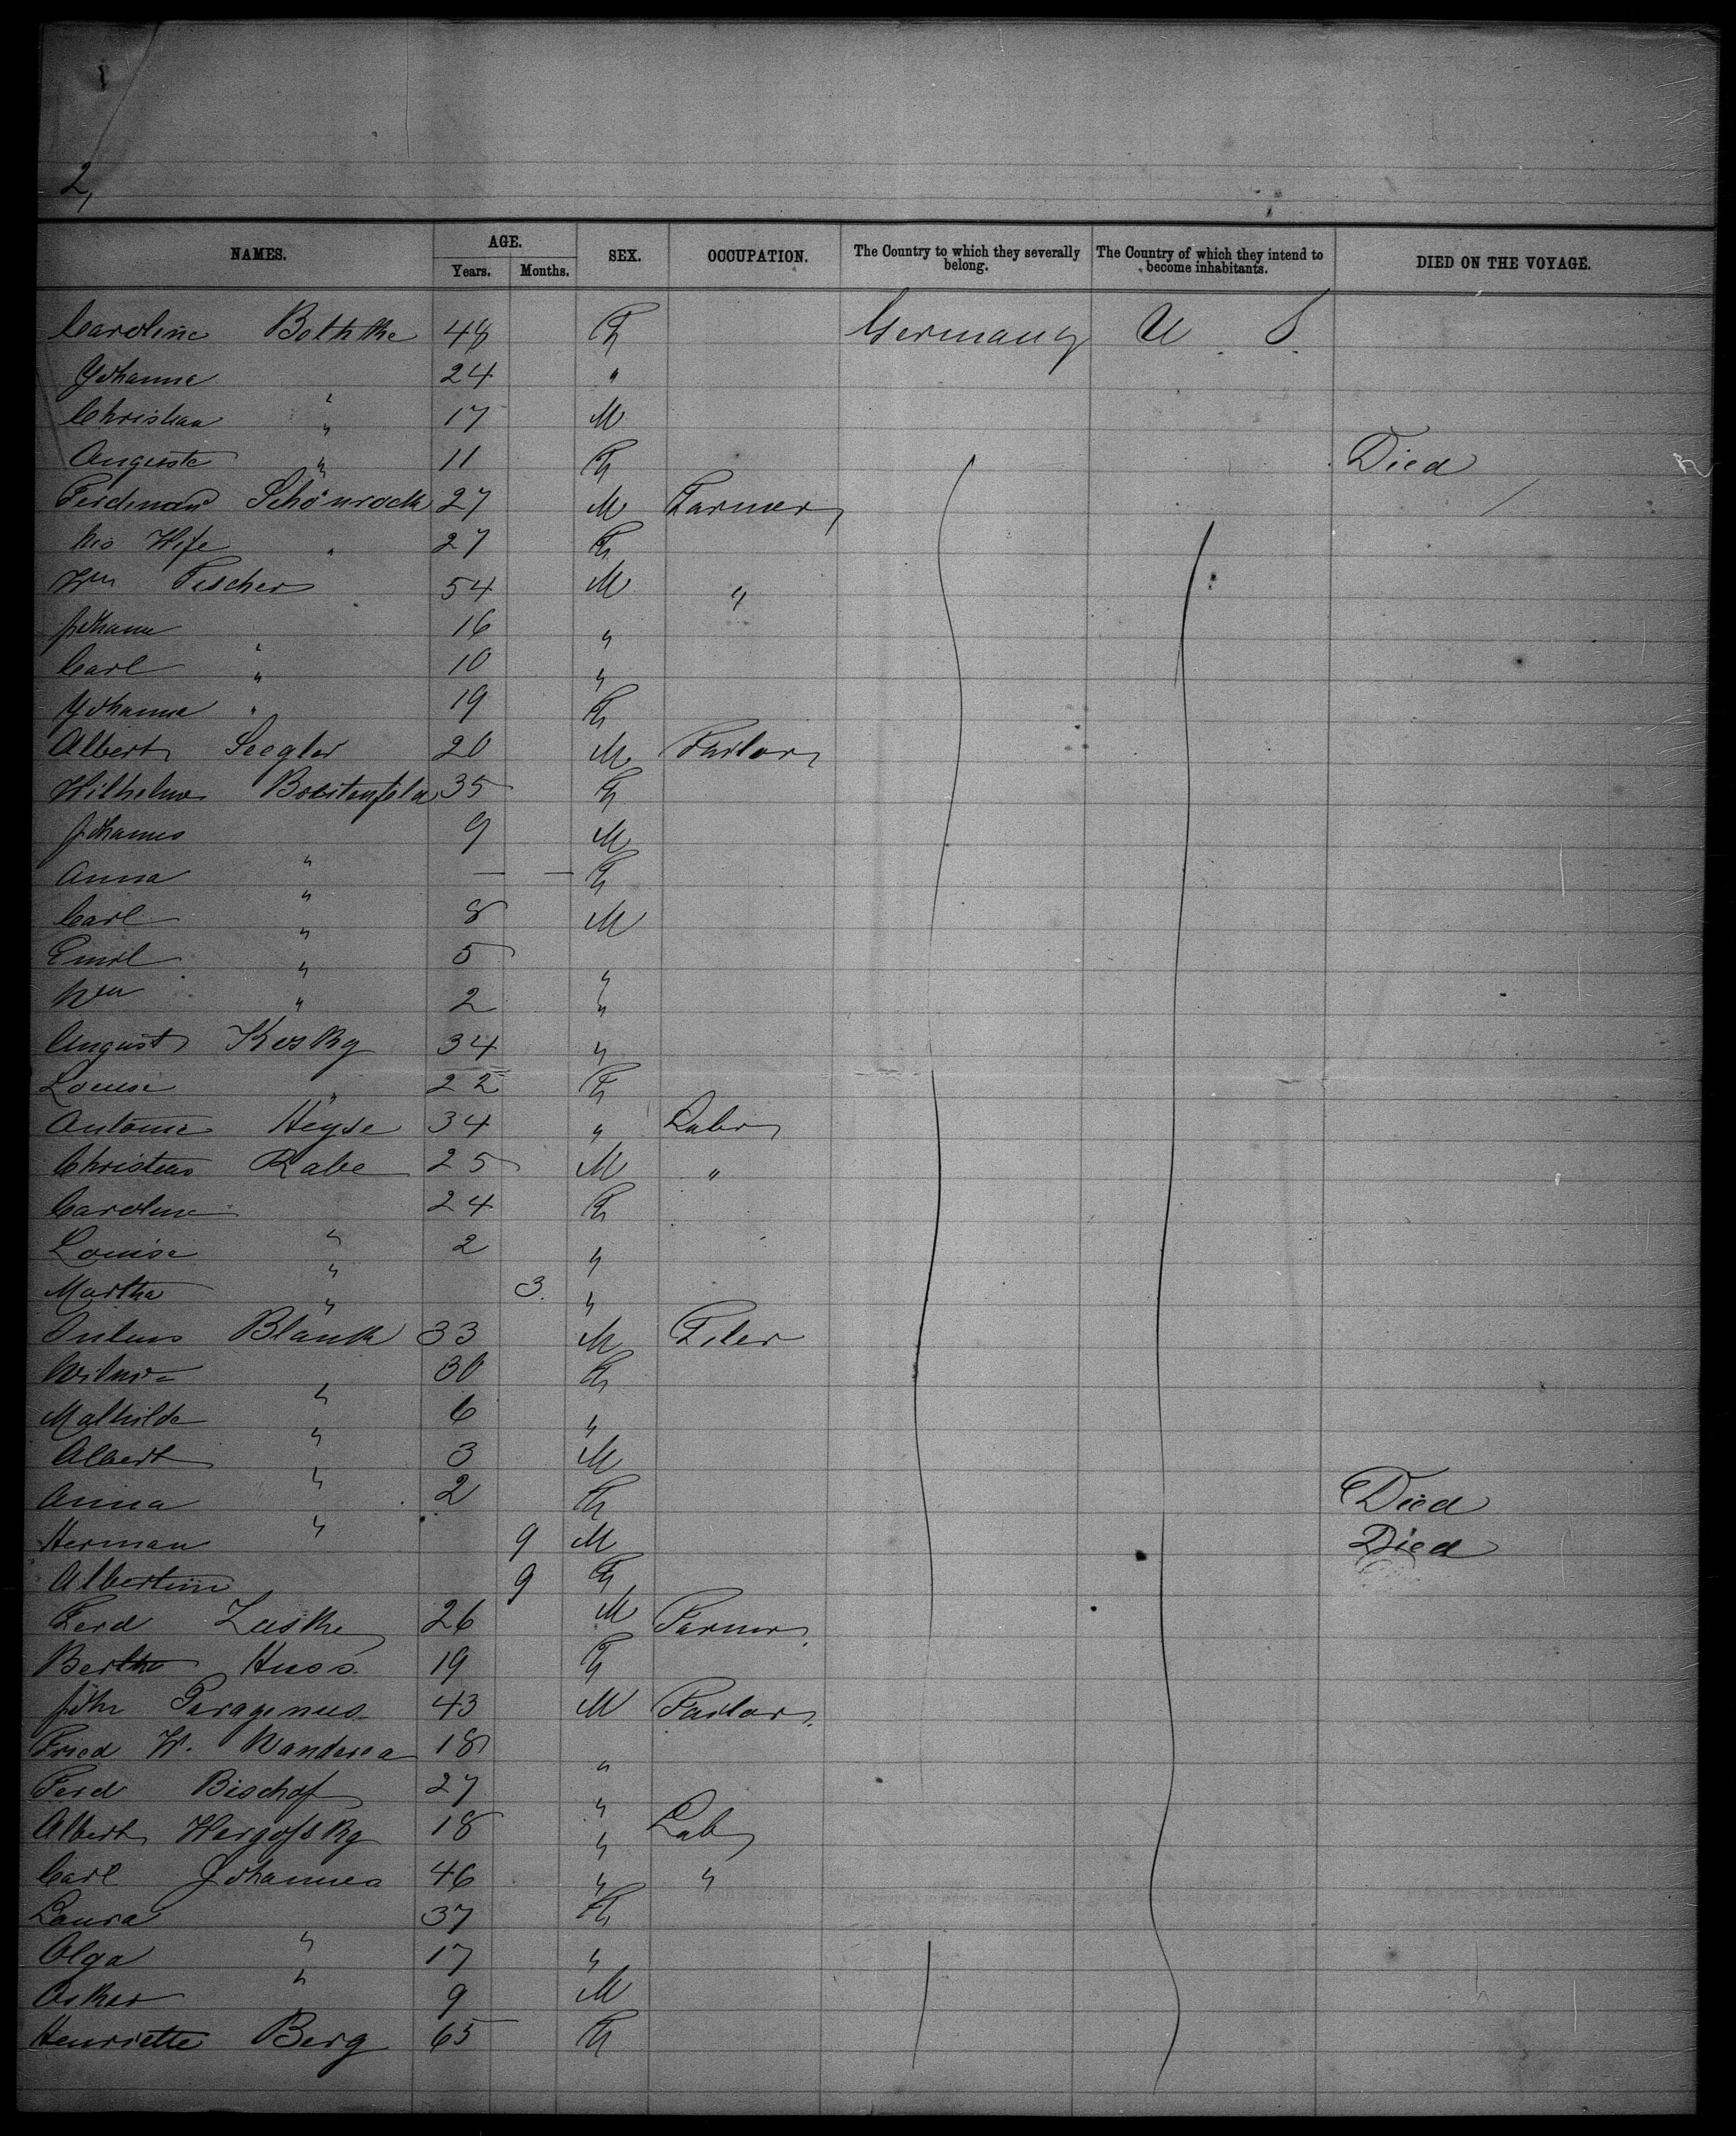 2,
NAMES. AGE. Years. Months. SEX. OCCUPATION. The Country to which they severally belong. The Country of which they intend to become inhabitants. DIED ON THE VOYAGE.
Caroline Boththe 48 F Germany U. S.
Johanna 24 "
Christian " 17 M
Auguste " 11 F Died
Ferdinand Schönrock 27 M Farmer
his Wife " 27 F
Wm Fischer 54 M "
Johann " 16 "
Carl " 10 "
Johanna " 19 F
Albert Seegler 20 M
Wilhelm Breitenfeld 35 F
Johannes " 9 M
Anna " — — F
Carl " 8 M
Emil " 5 "
Wm " 2 "
August Kesky 34 "
Louise " 22 F
Antonie Heyse 34 " Labr
Christian Rabe 25 M "
Caroline " 24 F
Louise " 2 "
Martha " 3. "
Julius Blank 33 M Tiler
30 F
Mathilde " 6 "
Albert " 3 M
Anna " 2 F Died
Herman " 9 M Died
Albertine 9 F
Ferd Zaske 26 M Farmer
Bertha Huss. 19 F
John 43 M
Fried W. 18 "
Ferd Bischof 27 "
Albert 18 " Lab
Carl Johannes 46 " "
Laura " 37 F
Olga " 17 "
Oskar 9 M
Henriette Berg 65 F